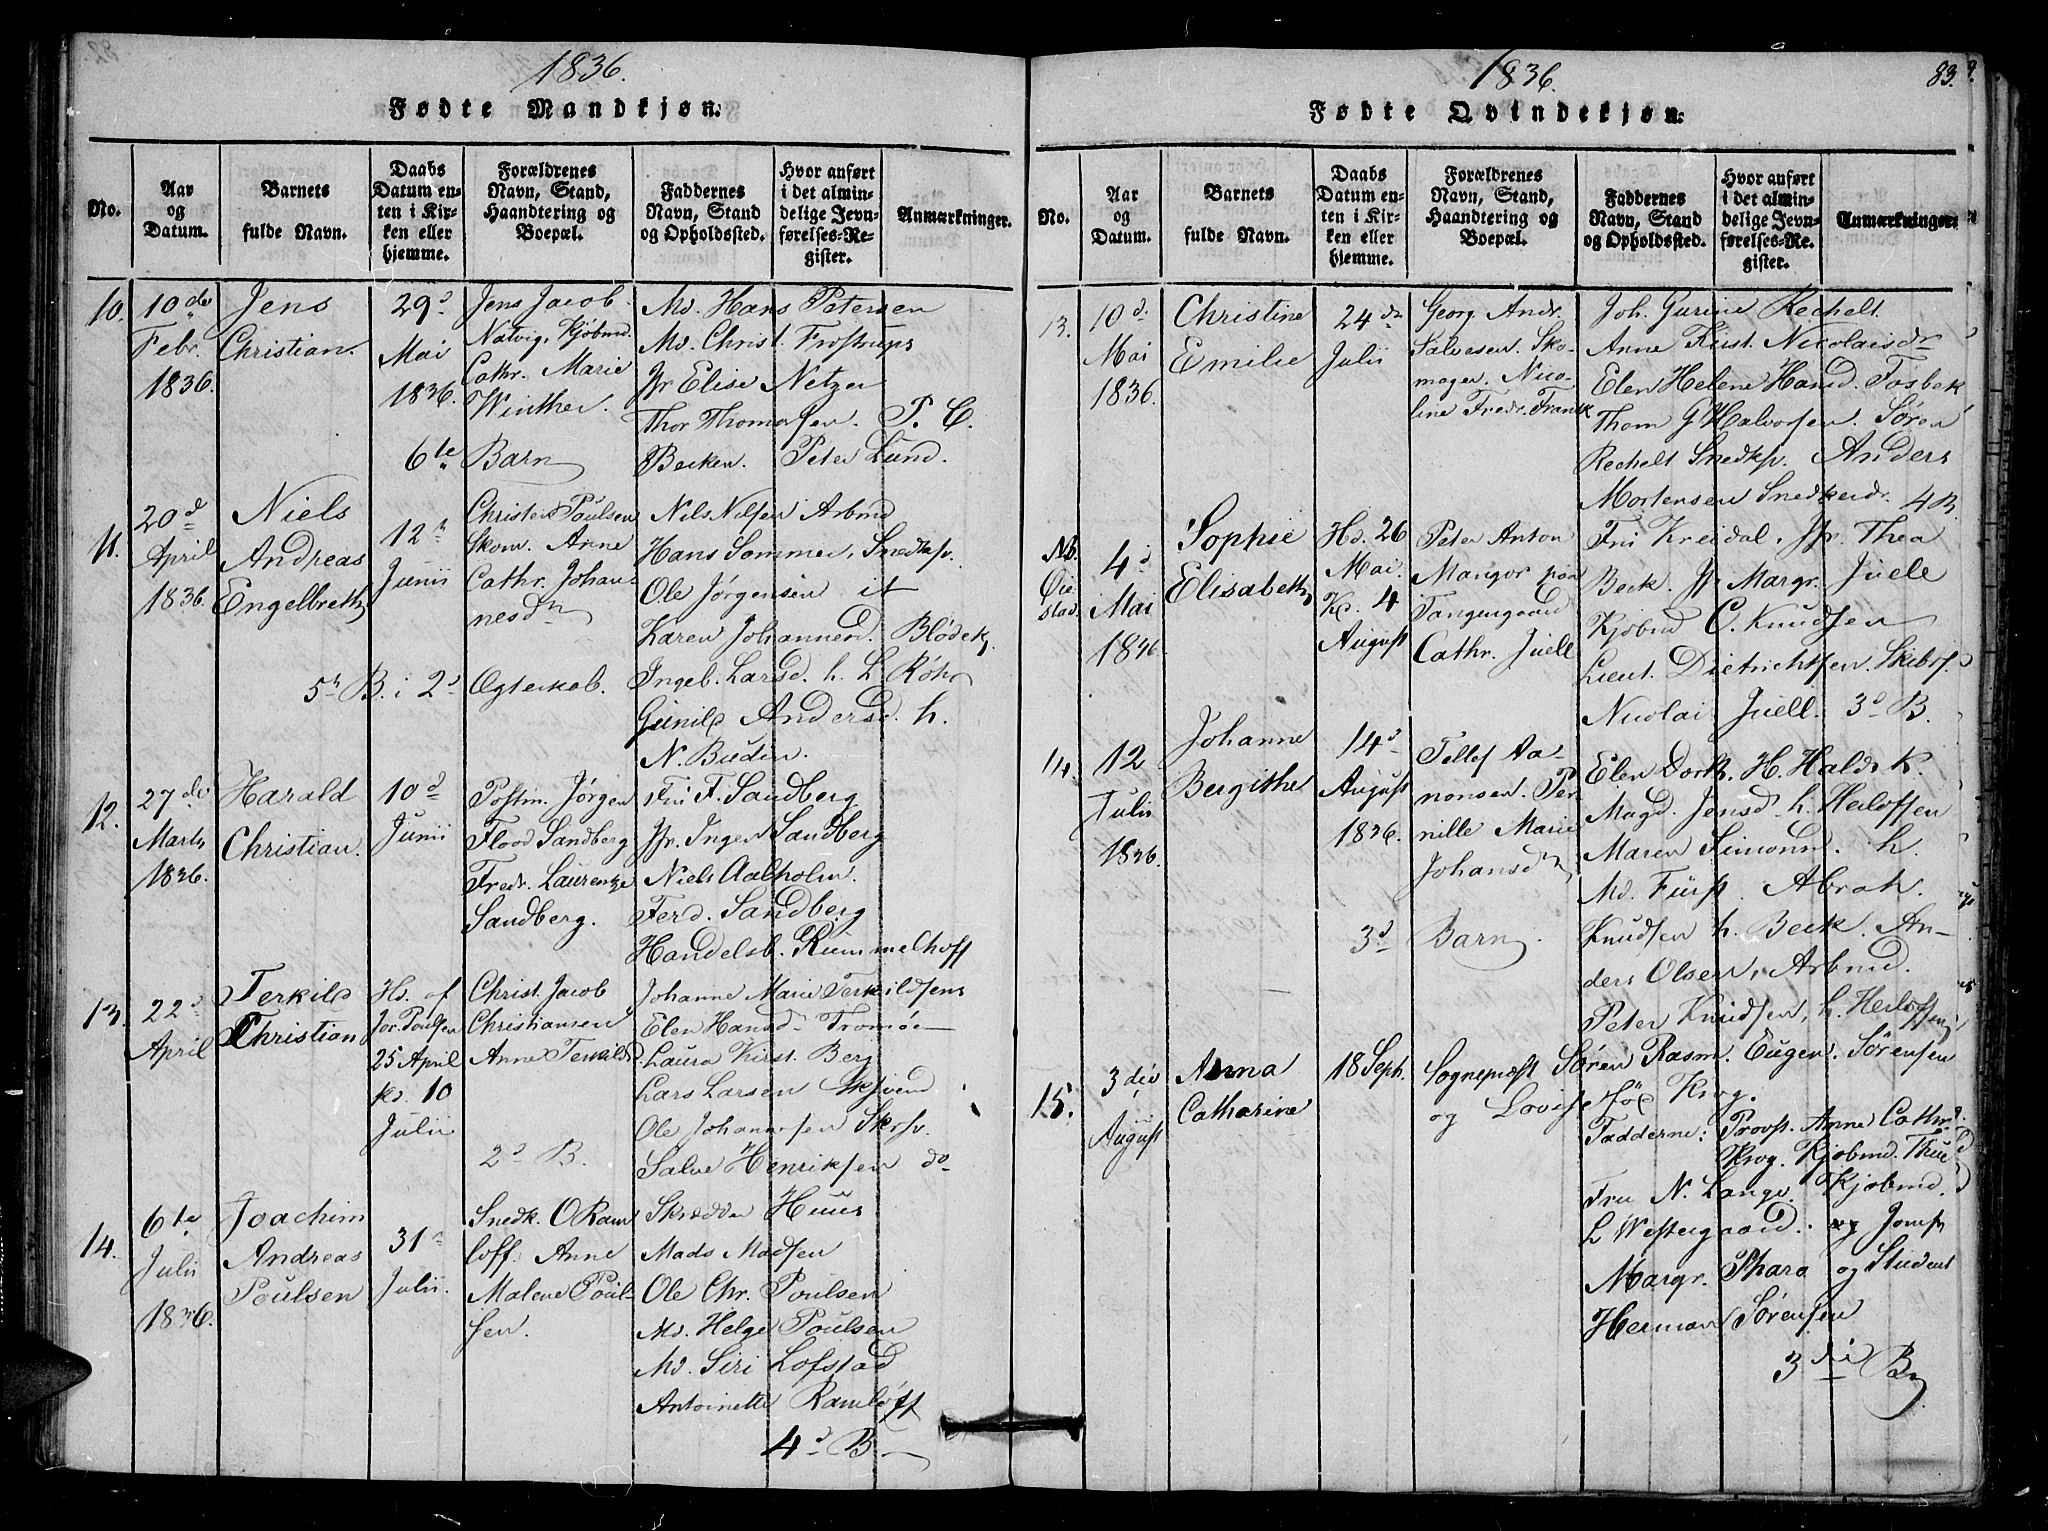 1836.
Fødte Mandkjøn.
No.
Aar og Datum.
Barnets fulde Navn.
Daabs Datum enten i Kirken eller hjemme.
Forældrenes Navn, Stand, Haandtering og Boepæl.
Faddernes Navn, Stand og Opholdssted.
Hvor anført i det almindelige Jevnførelses-Register.
Anmærkninger.
10.
10de
Febr.
1836.
Jens
Christian.
29d
Mai
1836.
Jens Jacob
Natvig, Kjøbmd
Cathr. Marie
Winther.
6te Barn
Md. Hans Petersen
Md. Christ. Frostrups
Jfr Elise Netzer
Thor Thomassen. P. C.
Becken. Peter Lund.
11.
20d
April
1836.
Niels
Andreas
Engelbreth
12
Junii
Christen Poulsen
Skom. Anne
Cathr. Johan-
nesd
5 B. i 2d Ægteskab.
Nils Nilsen Arbmd
Hans Sommer, Snedksv.
Ole Jørgensen it
Karen Johannesd. Blödek
Ingeb. Larsd. h. L Röhr
Gunild Andersd. h.
N. Budin.
12.
27de
Marts
1836.
Harald
Christian.
10d
Junii
Postm. Jørgen
Flood Sandberg
Fredr. Laurentze
Sandberg.
Fru F. Sandberg
Jfr. Inger Sandberg
Niels Aalholm.
Ferd. Sandberg
Handelsb. Rummelhoff
13.
22d
April
Terkild
Christian
Hd. af
Jor. Poulsen
25 April
kd. 10
Julii
Christ. Jacob
Christiansen
Anne Terkilds
2d B.
Johanne Marie Terkildsens
Elen Hansd. Tromöe
Laura Kirst. Berg
Lars Larsen
Ole Johannesen Sksv.
Salve Henriksen do
14.
6te
Julii
1836.
Joachim
Andreas
Poulsen
31
Julii.
Snedk. O Ram
loff. Anne
Malene Poul-
sen.
Skrædder Huus
Mads Madsen
Ole Chr. Poulsen
Md. Helge Poulsen
Md. Siri Lofstad
Antoinette Ramløff
4d B.
1836.
83.
Fødte Qvindekjøn.
No.
Aar og Datum.
Barnets fulde Navn.
Daabs Datum enten i Kirken eller hjemme.
Forældrenes Navn, Stand, Haandtering og Boepæl.
Faddernes Navn, Stand og Opholdssted.
Hvor anført i det almindelige Jevnførelses-Register.
Anmærkninger
13.
10d
Mai
1836.
Christine
Emilie
24de
Julii
Georg Andr.
Salvesen. Sko-
mager. Nico-
line Fredr. Frank
Joh. Gurine Rechelt
Anne Kirst. Nicolaisdr
Elen Helene Hansd. Fosbek
Thom G Halvorsen. Sören
Rechelt Snedksv. Anders
Mortensen Snedkerdr. 4 B.
Nb.
Øie
stad.
4d
Mai
1836
Sophie
Elisabeth
Hd. 26
Mai.
Kd. 4
August
Peter Anton
Mangor paa
Tangengaard
Cathr. Juell
Fru Kreidal, Jfr. Thea
Beck. Jfr Margr. Juele
Kjøbmd C. Knudsen
Lieut. Dietrichsen. Skibsf.
Nicolai Juell. 3d B.
14.
12
Julii
1836.
Johanne
Bergithe
14d
August
1836.
Tellef Aa-
nonsen. Per
nille Marie
Johansd
3d Barn.
Elen Dorth. H. Halds K.
Magd. Jensd. h. Herlofsen
Maren Simonn. h.
Md. Fürst. Abrah.
Knudsen h. Beck. An-
ders Olsen, Arbmd.
Peter Knudsen, h. Herloffsen
15.
3die
August
Anna
Catharine
18 Sept.
Sognepræst Sören Rasm. Eugen. Sörensen
og Lovise föd Krog.
Fadderne: Provst. Anne Cathr.
Krog. Kjøbmd. Thue
Fru N. Lange. Kjøbmd.
L Westergaard. og Jomfr
Margr. Pharo og Student
Herman Sörensen
3die B